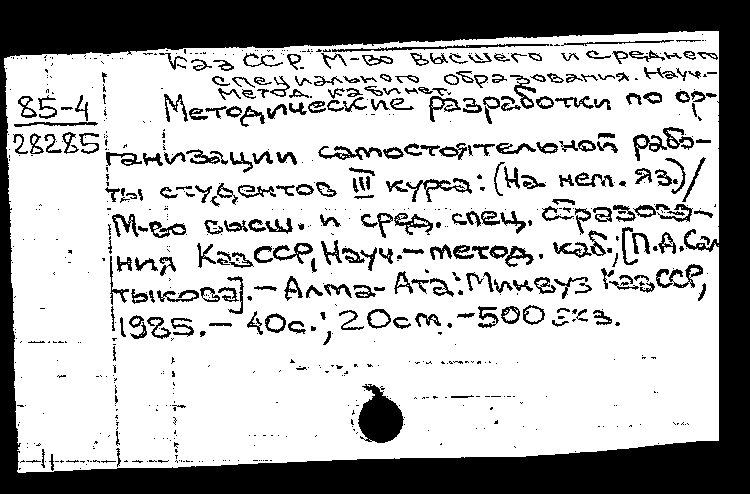 КазССР. М-во высшего и среднего
специального образования. Науч.-
метод. кабинет.
85-4
28285
Методические разработки по ор-
ганизации самостоятельной рабо-
ты студентов III курса: (На нем. яз.)/
М-во высш. и сред. спец. образова-
ния КазССР, Науч.-метод. каб.; [П.А.Сал
тыкова]. - Алма-Ата: Минвуз КазССР,
1985. - 40с.; 20см. - 500 экз.